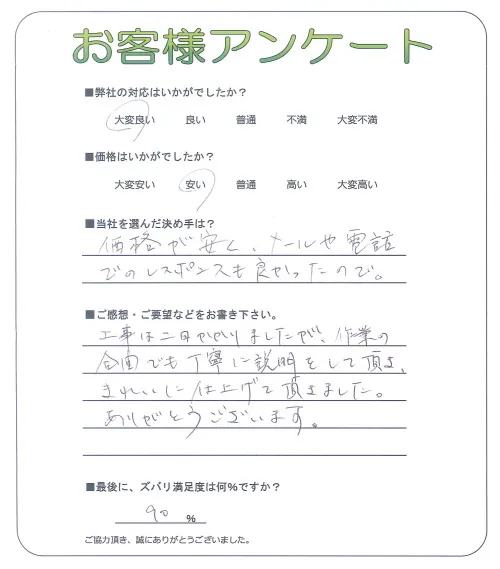 お客様アンケート
■弊社の対応はいかがでしたか?
大変良い 良い 普通 不満 大変不満
■価格はいかがでしたか?
大変安い 安い 普通 高い 大変高い
■当社を選んだ決め手は?
価格が安く、メールや電話
でのレスポンスも良かったので。
■ご感想・ご要望などをお書き下さい。
工事は二日かかりましたが、作業の
合間でも丁寧に説明をして頂き、
きれいに仕上げて頂きました。
ありがとうございます。
■最後に、ズバリ満足度は何%ですか?
90 %
ご協力頂き、誠にありがとうございました。